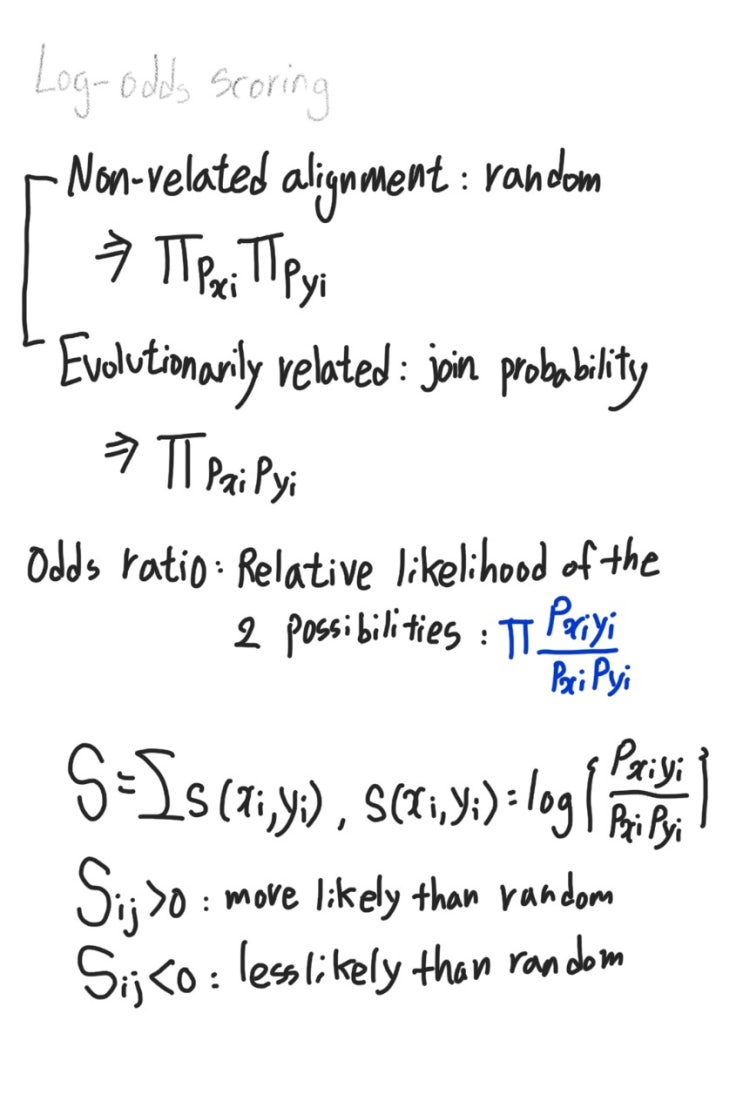 Log-odds scoring
Non-related alignment : random
⇒ ∏Pxi ∏Pyi
Evolutionarily related : join probability
⇒ ∏ Pxi Pyi
Odds ratio : Relative likelihood of the
2 possibilities : ∏ Pxiyi / Pxi Pyi
S = ∑ s(xi,yi) , s(xi,yi) = log [ Pxiyi / Pxi Pyi ]
Sij >0 : more likely than random
Sij <0 : less likely than random